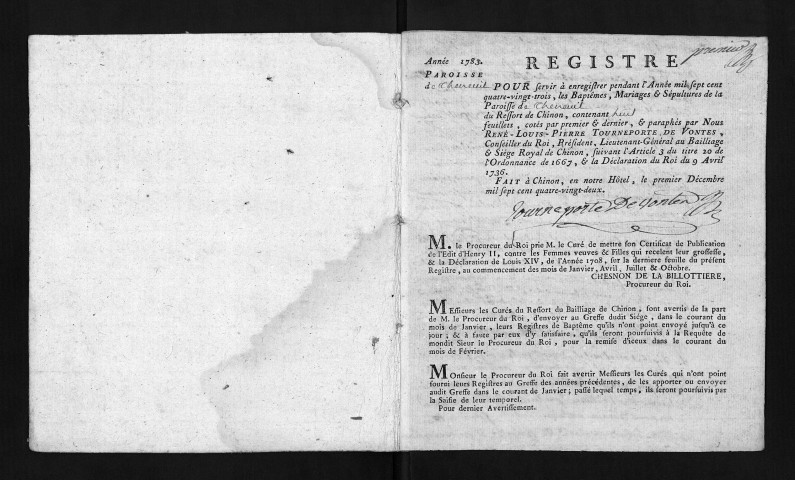 Année 1783.
REGISTRE
premier
PAROISSE
de Theneuil
POUR servir à enregistrer pendant l'Année mil sept cent
quatre-vingt-trois, les Baptêmes, Mariages & Sépultures de la
Paroisse de Theneuil
du Ressort de Chinon, contenant huit
feuillets, cotés par premier & dernier, & paraphés par Nous
RENÉ-LOUIS-PIERRE TOURNEPORTE DE VONTES,
Conseiller du Roi, Président, Lieutenant-Général au Bailliage
& Siége Royal de Chinon, suivant l'Article 3 du titre 20 de
l'Ordonnance de 1667, & la Déclaration du Roi du 9 Avril
1736.
FAIT à Chinon, en notre Hôtel, le premier Décembre
mil sept cent quatre-vingt-deux.
Tourneporte De Vontes
M. le Procureur du Roi prie M. le Curé de mettre son Certificat de Publication
de l'Edit d'Henry II, contre les Femmes veuves & Filles qui recelent leur grossesse,
& la Déclaration de Louis XIV, de l'Année 1708, sur la derniere feuille du présent
Registre, au commencement des mois de Janvier, Avril, Juillet & Octobre.
CHESNON DE LA BILLOTTIERE,
Procureur du Roi.
MEssieurs les Curés du Ressort du Bailliage de Chinon, sont avertis de la part
de M. le Procureur du Roi, d'envoyer au Greffe dudit Siége, dans le courant du
mois de Janvier, leurs Registres de Baptême qu'ils n'ont point envoyé jusqu'à ce
jour; & à faute par eux d'y satisfaire, qu'ils seront poursuivis à la Requête de
mondit Sieur le Procureur du Roi, pour la remise d'iceux dans le courant du
mois de Février.
MOnsieur le Procureur du Roi fait avertir Messieurs les Curés qui n'ont point
fourni leurs Registres au Greffe des années précédentes, de les apporter ou envoyer
audit Greffe dans le courant de Janvier; passé lequel temps, ils seront poursuivis par
la Saisie de leur temporel.
Pour dernier Avertissement.